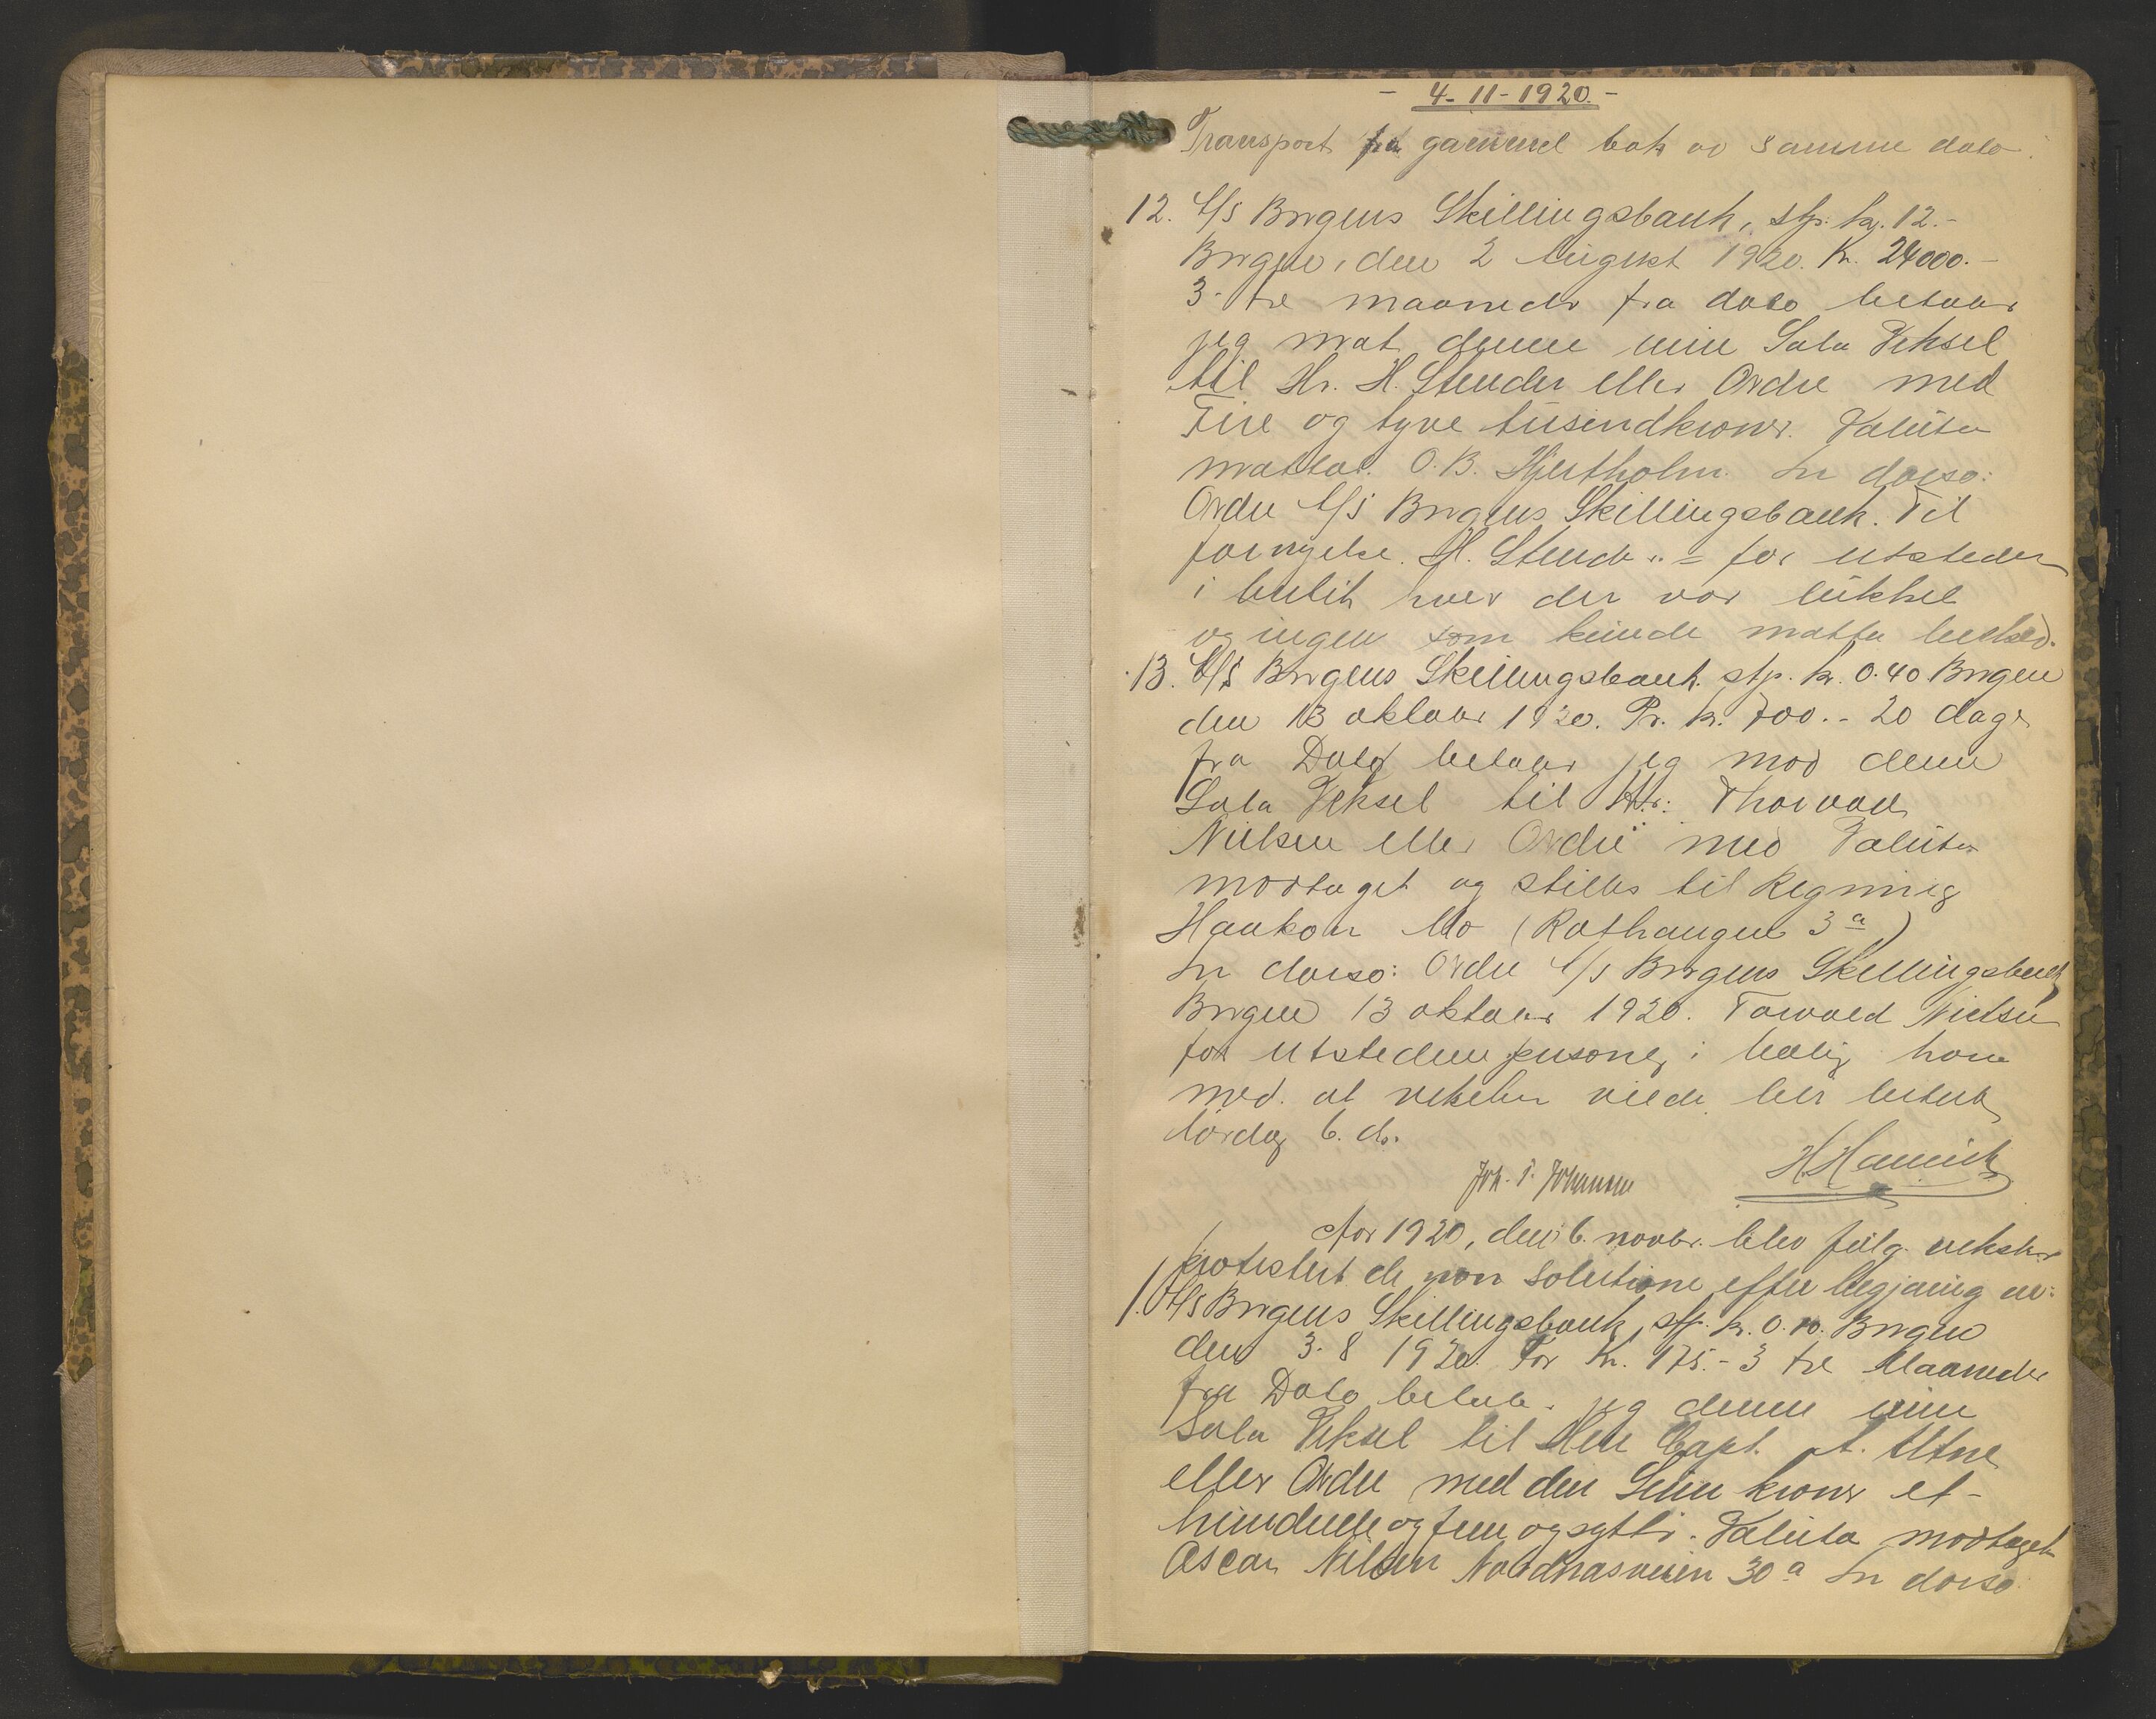 - 4-11-1920. -
Transport fra gammel bok av samme dato.
12. A/S Bergens Skillingsbank, stp. kr. 12.-
Bergen, den 2 August 1920. Kr. 24000.-
3- tre maaneder fra dato betaler
jeg mot denne min Sola Veksel
til Hr. H. Stender eller Ordre med
Fire og tyve tusindkroner. Valuta
mottat. O.B. Hjertholm. In dorso:
Ordre A/S Bergens Skillingsbank. Til
fornyelse. H. Stender. = for utsteder
i butik hvor der var lukket
og ingen som kunde motta besked.
13. A/S Bergens Skillingsbank. stp. kr. 0.40 Bergen
den 13 oktober 1920. Pr. kr. 700.- 20 dage
fra Dato betaler jeg mod denne
Sola Veksel til Hr: Thorvald
Nielsen eller Ordre med Valuta
mottaget og stilles til Regning
Haakon Mo (Rothaugen 3a)
In dorso: Ordre A/S Bergens Skillingsbank
Bergen 13 oktober 1920. Torvald Nielsen
for utstederen personlig i bolig hvem
med. at vekslen vilde bli betalt
lørdag 6. ds.
Joh. P. Johansen H. Hannich
Aar 1920, den 6. novbr. blev følg. veksler
protestert de non solutione efter begjæring av:
1. A/S Bergens Skillingsbank, stp. kr. 0.10. Bergen
den 3. 8 1920. For Kr. 175.- 3 tre Maaneder
fra Dato betaler jeg denne min
Sola Veksel til Herr Capt. A. Utne
eller Ordre med den Sum kroner et-
hundrede og fem og sytti. Valuta modtaget
Oscar Nilsen Nordnæsveien 30a In dorso: